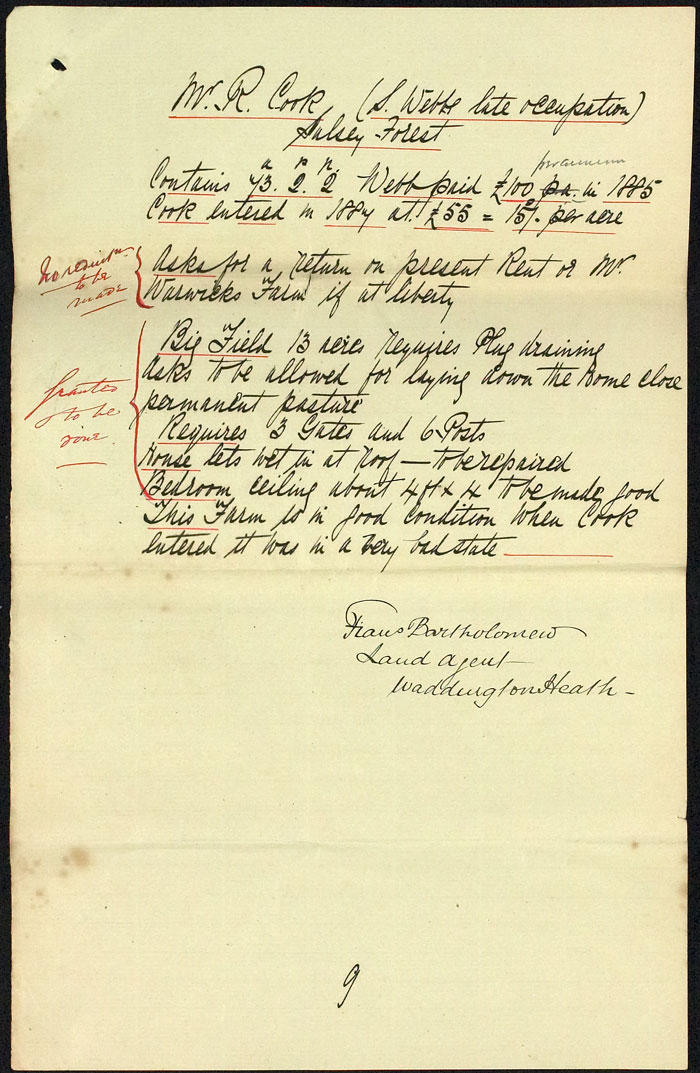 Mr. R. Cook (S. Webbs late occupation)
Salsey Forest
a r p.
per annum
Contains 73. 2. 2 Webb paid £100 pa. in 1885
Cook entered in 1887 at £55 = 15/- per acre
No reduct^n.
to be
made
Asks for a return on present Rent or Mr.
Warwicks Farm if at liberty
Granted
to be
done
Big Field 13 acres requires Plug draining
Asks to be allowed for laying down the Home close
permanent pasture
Requires 3 Gates and 6 Posts
House lets wet in at Roof — to be repaired
Bedroom ceiling about 4 ft x 4 to be made good
This Farm is in good condition when Cook
entered it was in a very bad state
Frans Bartholomew
Land Agent
Waddington Heath -
9